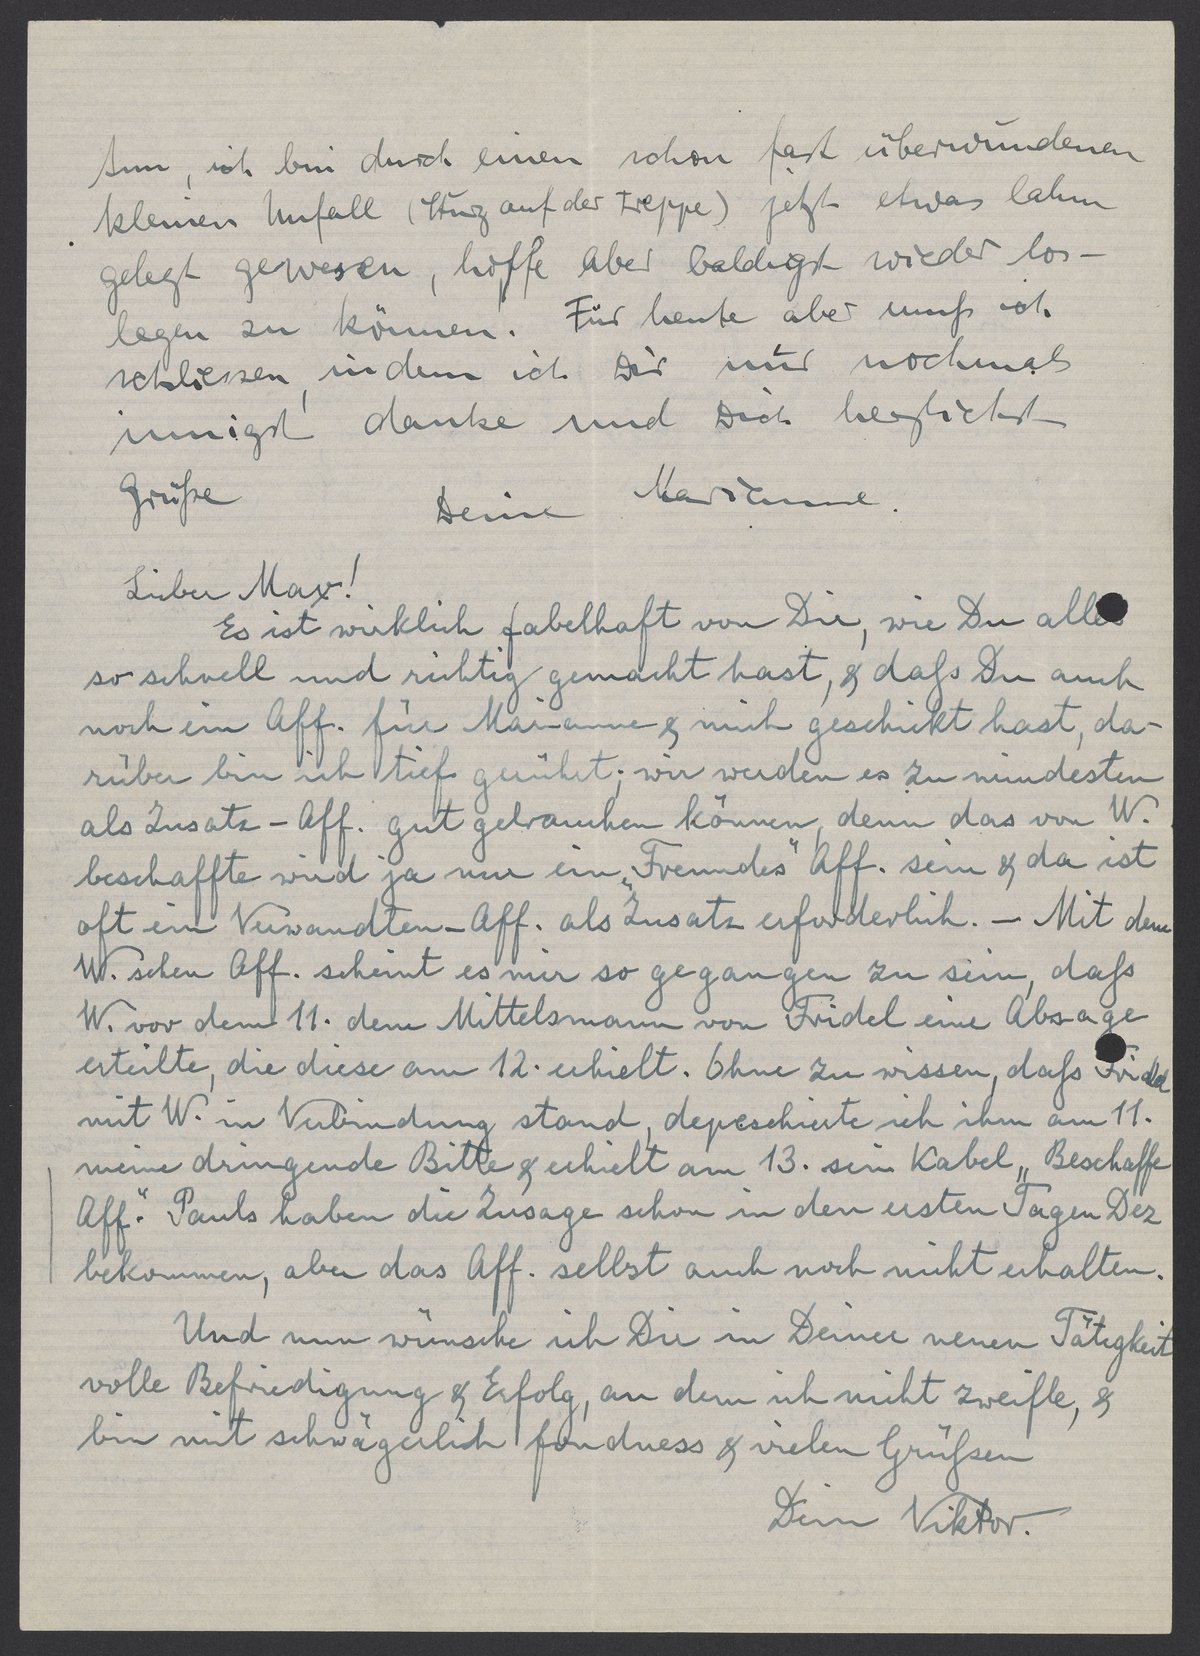 tun, ich bin durch einen schon fast überwundenen
kleinen Unfall (Sturz auf der Treppe) jetzt etwas lahm
gelegt gewesen, hoffe aber baldigst wieder los-
legen zu können. Für heute aber muß ich
schliessen, indem ich Dir nur nochmals
innigst danke und Dich herzlichst
Grüße
Deine Marianne.
Lieber Max!
Es ist wirklich fabelhaft von Dir, wie Du alles
so schnell und richtig gemacht hast, & daß Du auch
noch ein Aff. für Marianne & mich geschickt hast, da-
rüber bin ich tief gerührt; wir werden es zu mindesten
als Zusatz-Aff. gut gebrauchen können, denn das von W.
beschaffte wird ja nur ein „Freundes" Aff. sein & da ist
oft ein Verwandten-Aff. als Zusatz erforderlich. - Mit dem
W.schen Aff. scheint es mir so gegangen zu sein, daß
W. vor dem 11. dem Mittelsmann von Fridel eine Absage
erteilte, die diese am 12. erhielt. Ohne zu wissen, daß Fridel
mit W. in Verbindung stand, depeschierte ich ihm am 11.
meine dringende Bitte & erhielt am 13. sein Kabel „Beschaffe
Aff." Pauls haben die Zusage schon in den ersten Tagen Dez
bekommen, aber das Aff. selbst auch noch nicht erhalten.
Und nun wünsche ich Dir in Deiner neuen Tätigkeit
volle Befriedigung & Erfolg, an dem ich nicht zweifle, &
bin mit schwägerlich fondness & vielen Grüßen
Dein Viktor.